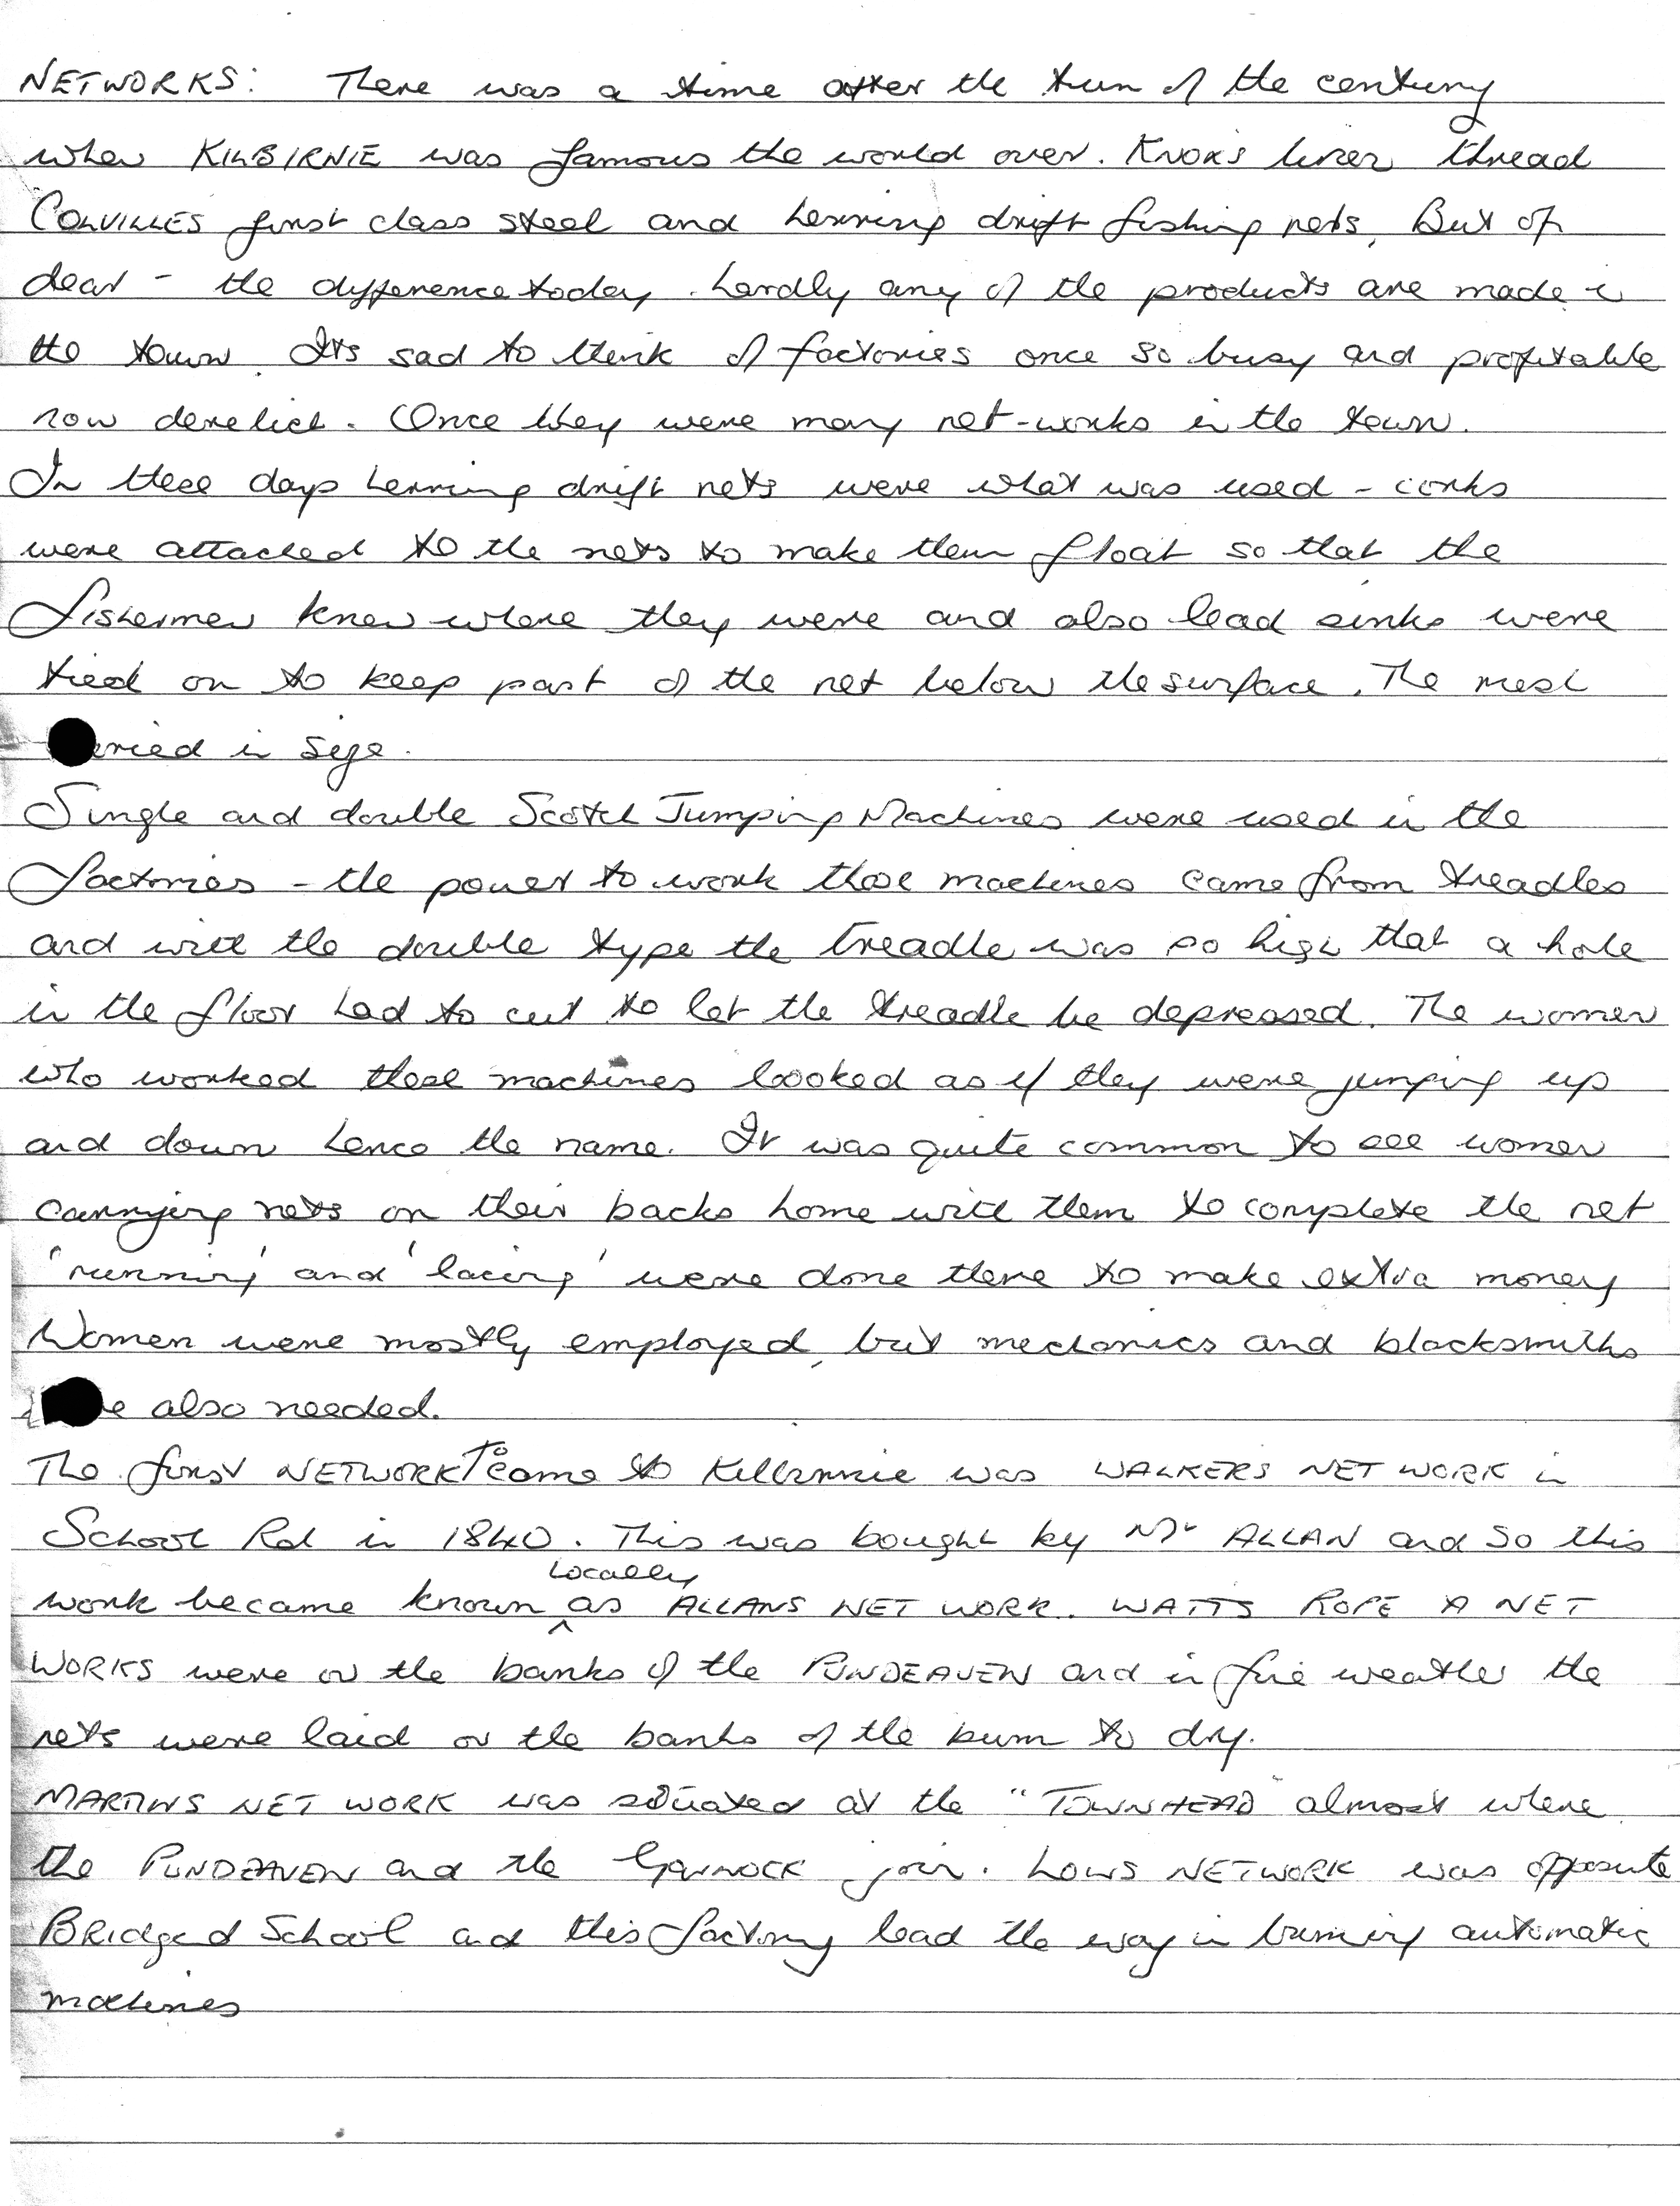 NETWORKS: There was a time after the turn of the century
when KILBIRNIE was famous the world over. KNOX'S linen thread
COLVILLES first class steel and herring drift fishing nets. But oh
dear - the difference today. hardly any of the products are made in
the town. Its sad to think of factories once so busy and profitable
now derelict. Once they were many net-works in the town.
In these days herring drift nets were what was used - corks
were attached to the nets to make them float so that the
fishermen knew where they were and also lead sinks were
tied on to keep part of the net below the surface. The mesh
varied in size.
Single and double Scotch Jumping Machines were used in the
factories - the power to work those machines came from treadles
and with the double type the treadle was so high that a hole
in the floor had to cut to let the treadle be depressed. The women
who worked these machines looked as if they were jumping up
and down hence the name. It was quite common to see women
carrying nets on their backs home with them to complete the net
'running' and 'lacing' were done there to make extra money
Women were mostly employed, but mechanics and blacksmiths
were also needed.
The first NETWORK To come to Kilbirnie was WALKERS NET WORK in
School Rd in 1840. This was bought by Mr ALLAN and so this
work became known locally as ALLANS NET WORK. WATTS ROPE & NET
WORKS were on the banks of the PUNDEAVEN and in fine weather the
nets were laid on the banks of the burn to dry.
MARTINS NET WORK was situated at the "TOWNHEAD" almost where
the PUNDEAVEN and the GARNOCK join. LOWS NETWORK was opposite
Bridgend School and this factory lead the way in buying automatic
machines